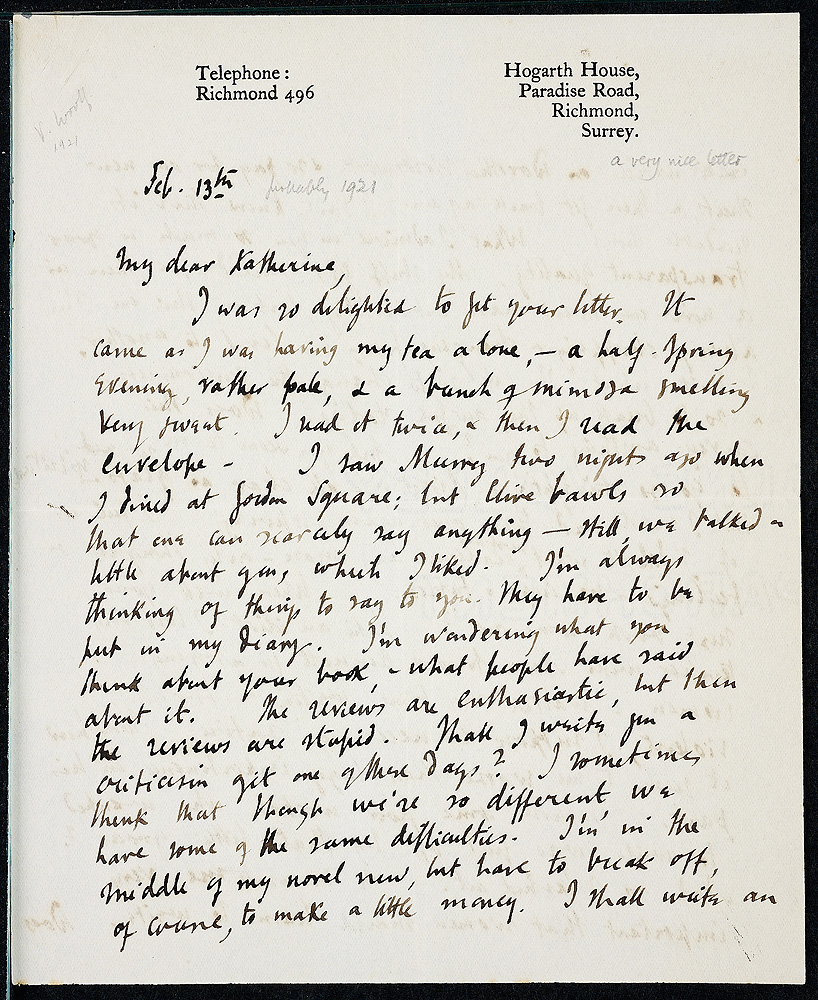 Telephone:
Richmond 496
Hogarth House,
Paradise Road,
Richmond,
Surrey.
V. Woolf
1921
a very nice letter
Feb. 13th probably 1921
My dear Katherine,
I was so delighted to get your letter. It
came as I was having my tea alone, – a half-spring
evening, rather pale, & a bunch of mimosa smelling
very sweet. I read it twice, & then I read the
envelope – I saw Murry two nights ago when
I dined at Gordon Square; but Clive bawls so
that one can scarcely say anything – still, we talked a
little about you, which I liked. I'm always
thinking of things to say to you. They have to be
put in my diary. I'm wondering what you
think about your book, – what people have said
about it. The reviews are enthusiastic, but then
the reviews are stupid. Shall I write you a
criticism of it one of these days? I sometimes
think that though we're so different we
have some of the same difficulties. I'm in the
middle of my novel now, but have to break off,
of course, to make a little money. I shall write an